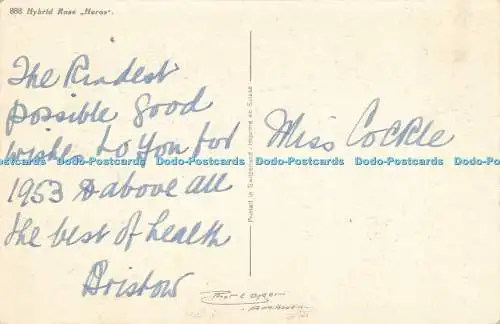 888 Hybrid Rose „Heros".
The Kindest
possible good
wishes to you for
1953 & above all
the best of health
Bristow
Miss Cockle
Printed in Switzerland - Imprimé en Suisse
Dodo-Postcards Dodo-Postcards Dodo-Postcards Dodo-Postcards Dodo-Postcards